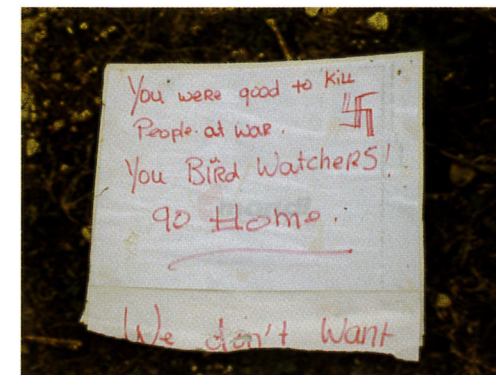 You were good to kill
People at war.
You Bird Watchers!
go Home.
We don't Want